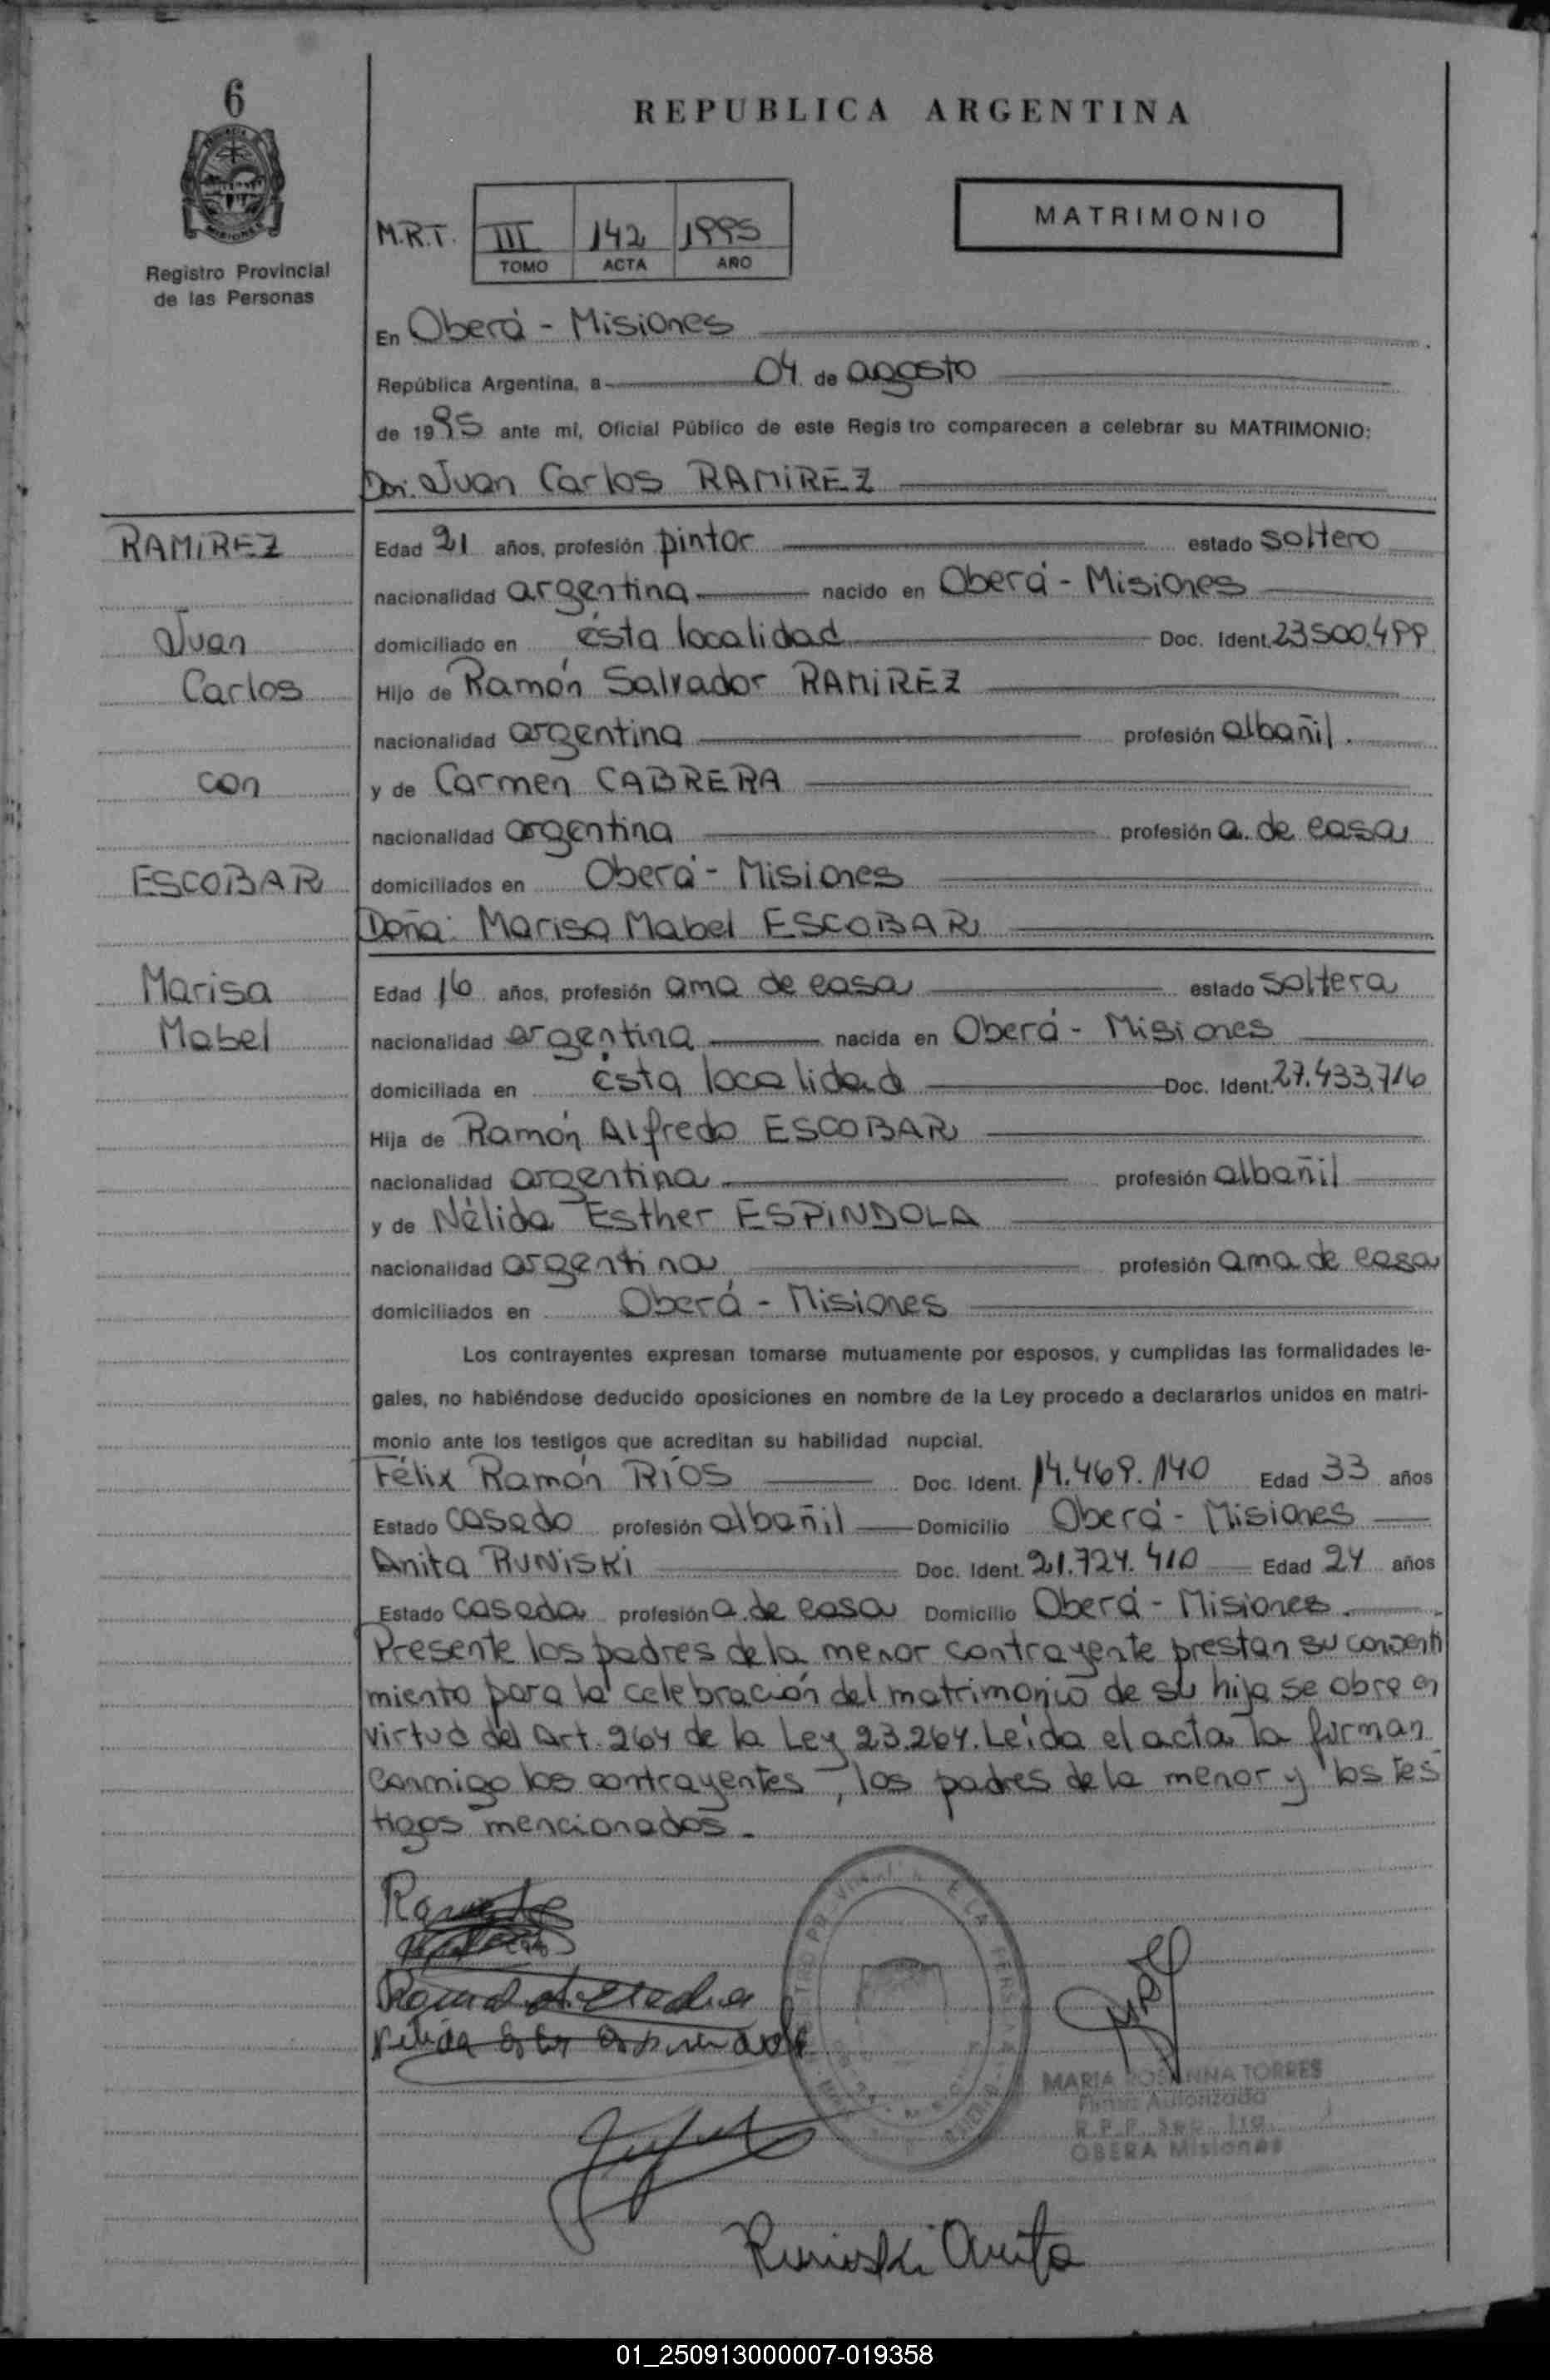 6
REPUBLICA ARGENTINA
MATRIMONIO
M.R.T. III 142 1995
TOMO ACTA AÑO
Registro Provincial
de las Personas
En Oberá - Misiones
República Argentina, a 04 de agosto
de 1995 ante mí, Oficial Público de este Regis tro comparecen a celebrar su MATRIMONIO:
Don: Juan Carlos RAMIREZ
RAMIREZ
Juan
Carlos
con
ESCOBAR
Marisa
Mabel
Edad 21 años, profesión pintor estado soltero
nacionalidad argentina nacido en Oberá - Misiones
domiciliado en ésta localidad Doc. Ident. 23500.499
Hijo de Ramón Salvador RAMIREZ
nacionalidad argentina profesión albañil.
y de Carmen CABRERA
nacionalidad argentina profesión a. de casa
domiciliados en Oberá - Misiones
Doña: Marisa Mabel ESCOBAR
Edad 16 años, profesión ama de casa estado soltera
nacionalidad argentina nacida en Oberá - Misiones
domiciliada en ésta localidad Doc. Ident. 27.433.716
Hija de Ramón Alfredo ESCOBAR
nacionalidad argentina profesión albañil
y de Nélida Esther ESPINDOLA
nacionalidad argentina profesión ama de casa
domiciliados en Oberá - Misiones
Los contrayentes expresan tomarse mutuamente por esposos, y cumplidas las formalidades le-
gales, no habiéndose deducido oposiciones en nombre de la Ley procedo a declararlos unidos en matri-
monio ante los testigos que acreditan su habilidad nupcial.
Félix Ramón RÍOS Doc. Ident. 14.469.140 Edad 33 años
Estado casado profesión albañil Domicilio Oberá - Misiones
Anita RUNISKI Doc. Ident. 21.724.410 Edad 24 años
Estado casada profesión a. de casa Domicilio Oberá - Misiones.
Presente los padres de la menor contrayente prestan su consenti
miento para la celebración del matrimonio de su hija se obre en
virtud del Art. 264 de la Ley 23.264. Leída el acta la firman
conmigo los contrayentes, los padres de la menor y los tes
tigos mencionados.
MARIA ROSANNA TORRES
Firma Autorizada
OBERA Misiones
Runiski Anita
01_250913000007-019358